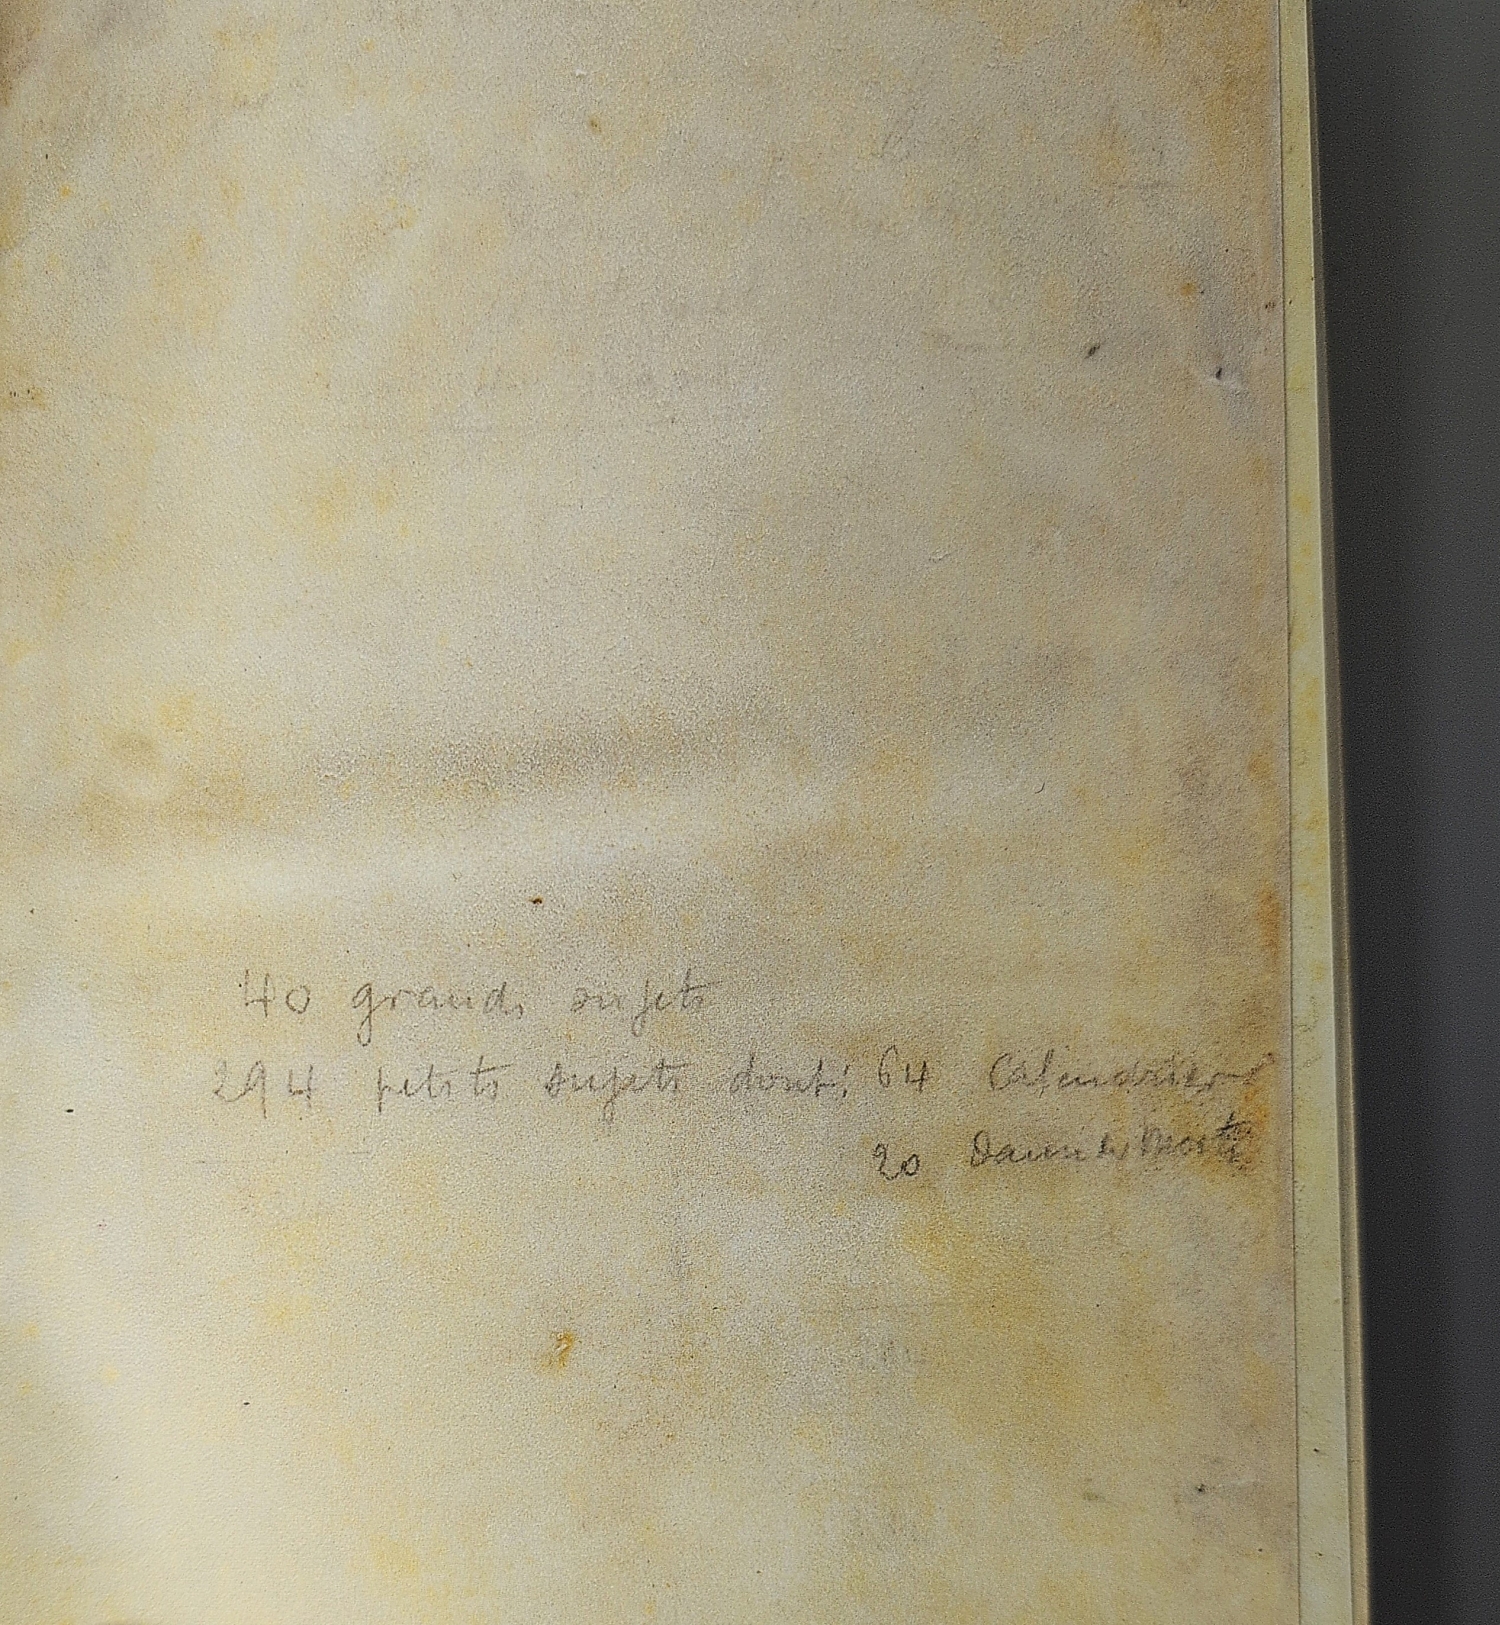 40 grands sujets
294 petits sujets dont: 64 Calendrier
20 Danse des Morts